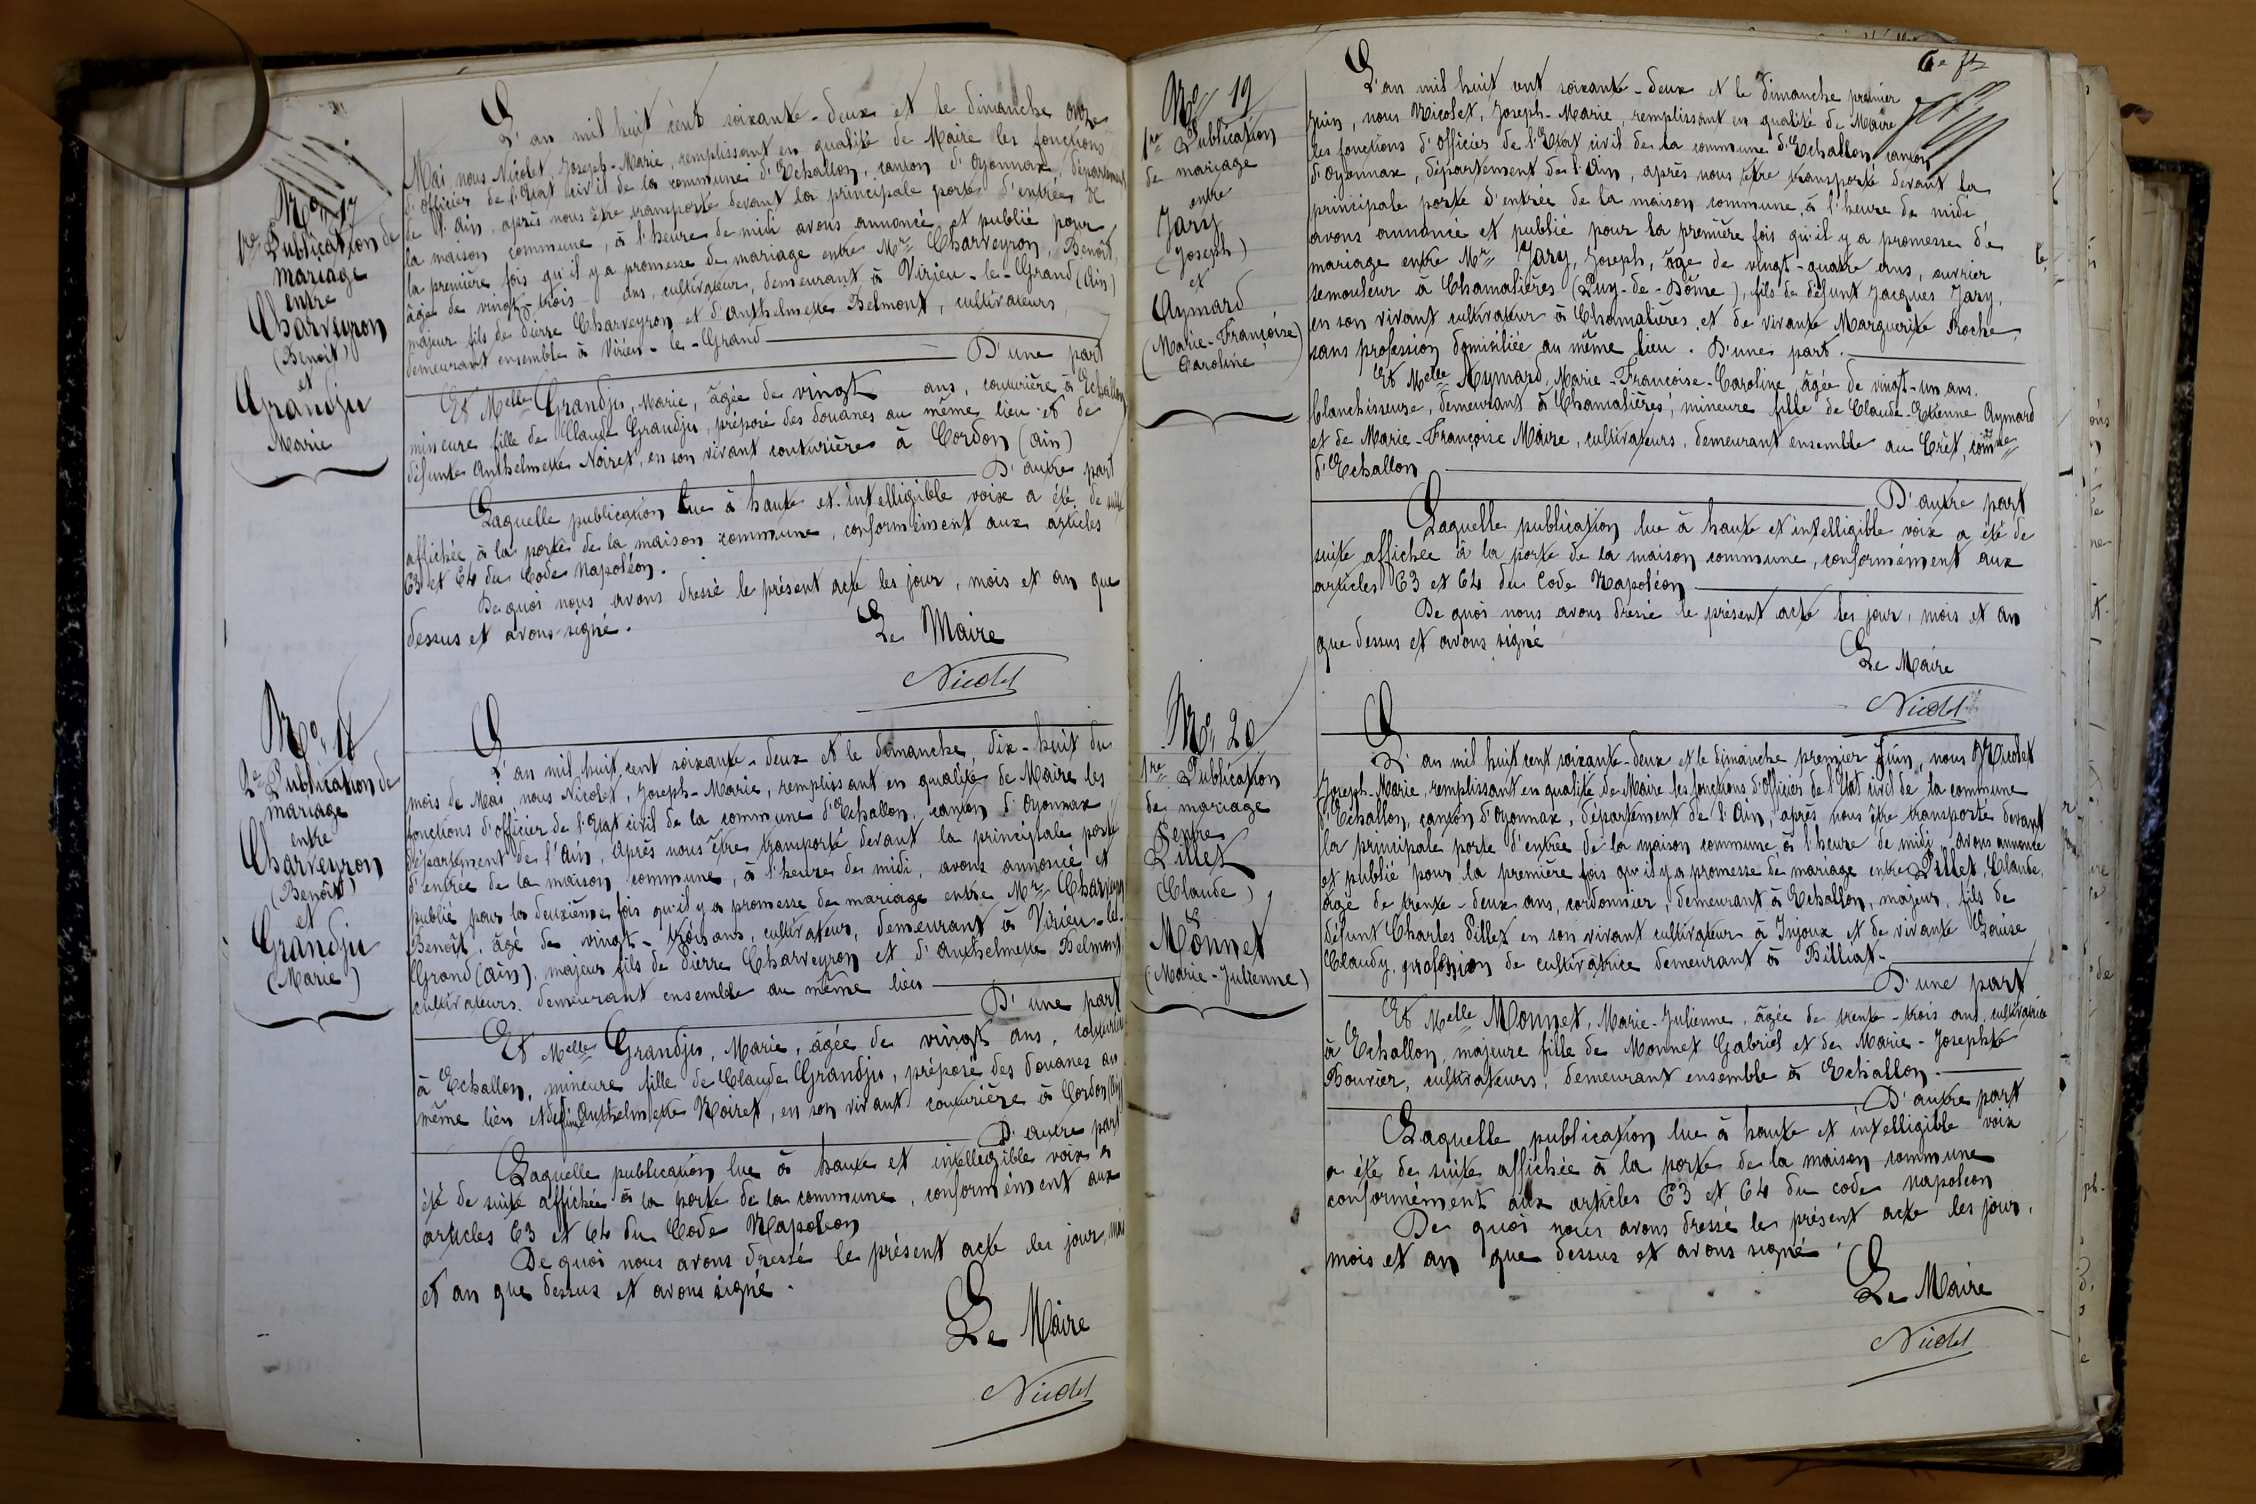 No 17
1re Publication de
mariage
entre
Charveyron
(Benoît)
et
Grandju
Marie
L'an mil huit cent soixante-deux et le dimanche onze
Mai nous Nicolet, Joseph-Marie, remplissant en qualité de Maire les fonctions
d'officier de l'Etat civil de la commune d'Echallon, canton d'Oyonnax, département
de l'Ain, après nous être transporté devant la principale porte d'entrée de
la maison commune, à l'heure de midi avons annoncé et publié pour
la première fois qu'il y a promesse de mariage entre Mr Charveyron, Benoît,
âgé de vingt-trois ans, cultivateur, demeurant à Virieu-le-Grand (Ain)
majeur fils de Pierre Charveyron et d'Anthelmette Belmont, cultivateurs,
demeurant ensemble à Virieu-le-Grand
D'une part
Et Melle Grandju, Marie, âgée de vingt ans, couturière à Echallon
mineure fille de Claude Grandju, préposé des douanes au même lieu et de
défunte Anthelmette Noiret, en son vivant couturière à Cordon (Ain)
D'autre part
Laquelle publication lue à haute et intelligible voix a été de suite
affichée à la porte de la maison commune, conformément aux articles
63 et 64 du Code Napoléon.
De quoi nous avons dressé le présent acte les jour, mois et an que
dessus et avons signé.
Le Maire
Nicolet
No 18
2e Publication de
mariage
entre
Charveyron
(Benoît)
et
Grandju
(Marie)
L'an mil huit cent soixante-deux et le dimanche dix-huit du
mois de Mai, nous Nicolet, Joseph-Marie, remplissant en qualité de Maire les
fonctions d'officier de l'Etat civil de la commune d'Echallon, canton d'Oyonnax
département de l'Ain, Après nous être transporté devant la principale porte
d'entrée de la maison commune, à l'heure de midi, avons annoncé et
publié pour la deuxième fois qu'il y a promesse de mariage entre Mr Charveyron
Benoît, âgé de vingt-trois ans, cultivateur, demeurant à Virieu-le-
Grand (Ain), majeur fils de Pierre Charveyron et d'Anthelmette Belmont,
cultivateurs, demeurant ensemble au même lieu
D'une part
Et Melle Grandju, Marie, âgée de vingt ans, couturière
à Echallon, mineure fille de Claude Grandju, préposé des douanes au
même lieu et défunte Anthelmette Noiret, en son vivant couturière à Cordon (Ain)
D'autre part
Laquelle publication lue à haute et intelligible voix a
été de suite affichée à la porte de la commune, conformément aux
articles 63 et 64 du Code Napoléon
De quoi nous avons dressé le présent acte les jour, mois
et an que dessus et avons signé.
Le Maire
Nicolet
6e ft
No 19
1re Publication
de mariage
entre
Jary
(Joseph)
et
Aymard
(Marie-Françoise)
Caroline
L'an mil huit cent soixante-deux et le dimanche premier
Juin, nous Nicolet, Joseph-Marie, remplissant en qualité de Maire
les fonctions d'Officier de l'Etat civil de la commune d'Echallon canton
d'Oyonnax, département de l'Ain, après nous être transporté devant la
principale porte d'entrée de la maison commune, à l'heure de midi
avons annoncé et publié pour la première fois qu'il y a promesse de
mariage entre Mr Jary, Joseph, âgé de vingt-quatre ans, ouvrier
semouleur à Chamalières (Puy-de-Dôme), fils de défunt Jacques Jary,
en son vivant cultivateur à Chamalières, et de vivante Marguerite Roche,
sans profession domiciliée au même lieu. D'une part.
Et Melle Aymard, Marie-Françoise-Caroline, âgée de vingt-un ans,
blanchisseuse, demeurant à Chamalières, mineure fille de Claude-Etienne Aymard
et de Marie-Françoise Maire, cultivateurs, demeurant ensemble au Crêt, comne
d'Echallon
D'autre part
Laquelle publication lue à haute et intelligible voix a été de
suite affichée à la porte de la maison commune, conformément aux
articles 63 et 64 du Code Napoléon
De quoi nous avons dressé le présent acte les jour, mois et an
que dessus et avons signé
Le Maire
Nicolet
No 20
1re Publication
de mariage
entre
Pillet
(Claude)
et
Monnet
(Marie-Julienne)
L'an mil huit cent soixante-deux et le dimanche premier Juin, nous Nicolet
Joseph-Marie, remplissant en qualité de Maire les fonctions d'Officier de l'Etat civil de la commune
d'Echallon, canton d'Oyonnax, département de l'Ain, après nous être transporté devant
la principale porte d'entrée de la maison commune, à l'heure de midi avons annoncé
et publié pour la première fois qu'il y a promesse de mariage entre Pillet, Claude,
âgé de trente-deux ans, cordonnier, demeurant à Echallon, majeur, fils de
défunt Charles Pillet en son vivant cultivateur à Injoux et de vivante Louise
Claudy, profession de cultivatrice demeurant à Billiat.
D'une part
Et Melle Monnet, Marie-Julienne, âgée de trente-trois ans, cultivatrice
à Echallon, majeure fille de Monnet Gabriel et de Marie-Josephte
Bouvier, cultivateurs, demeurant ensemble à Echallon.
D'autre part
Laquelle publication lue à haute et intelligible voix
a été de suite affichée à la porte de la maison commune
conformément aux articles 63 et 64 du code napoléon
De quoi nous avons dressé le présent acte les jour,
mois et an que dessus et avons signé.
Le Maire
Nicolet